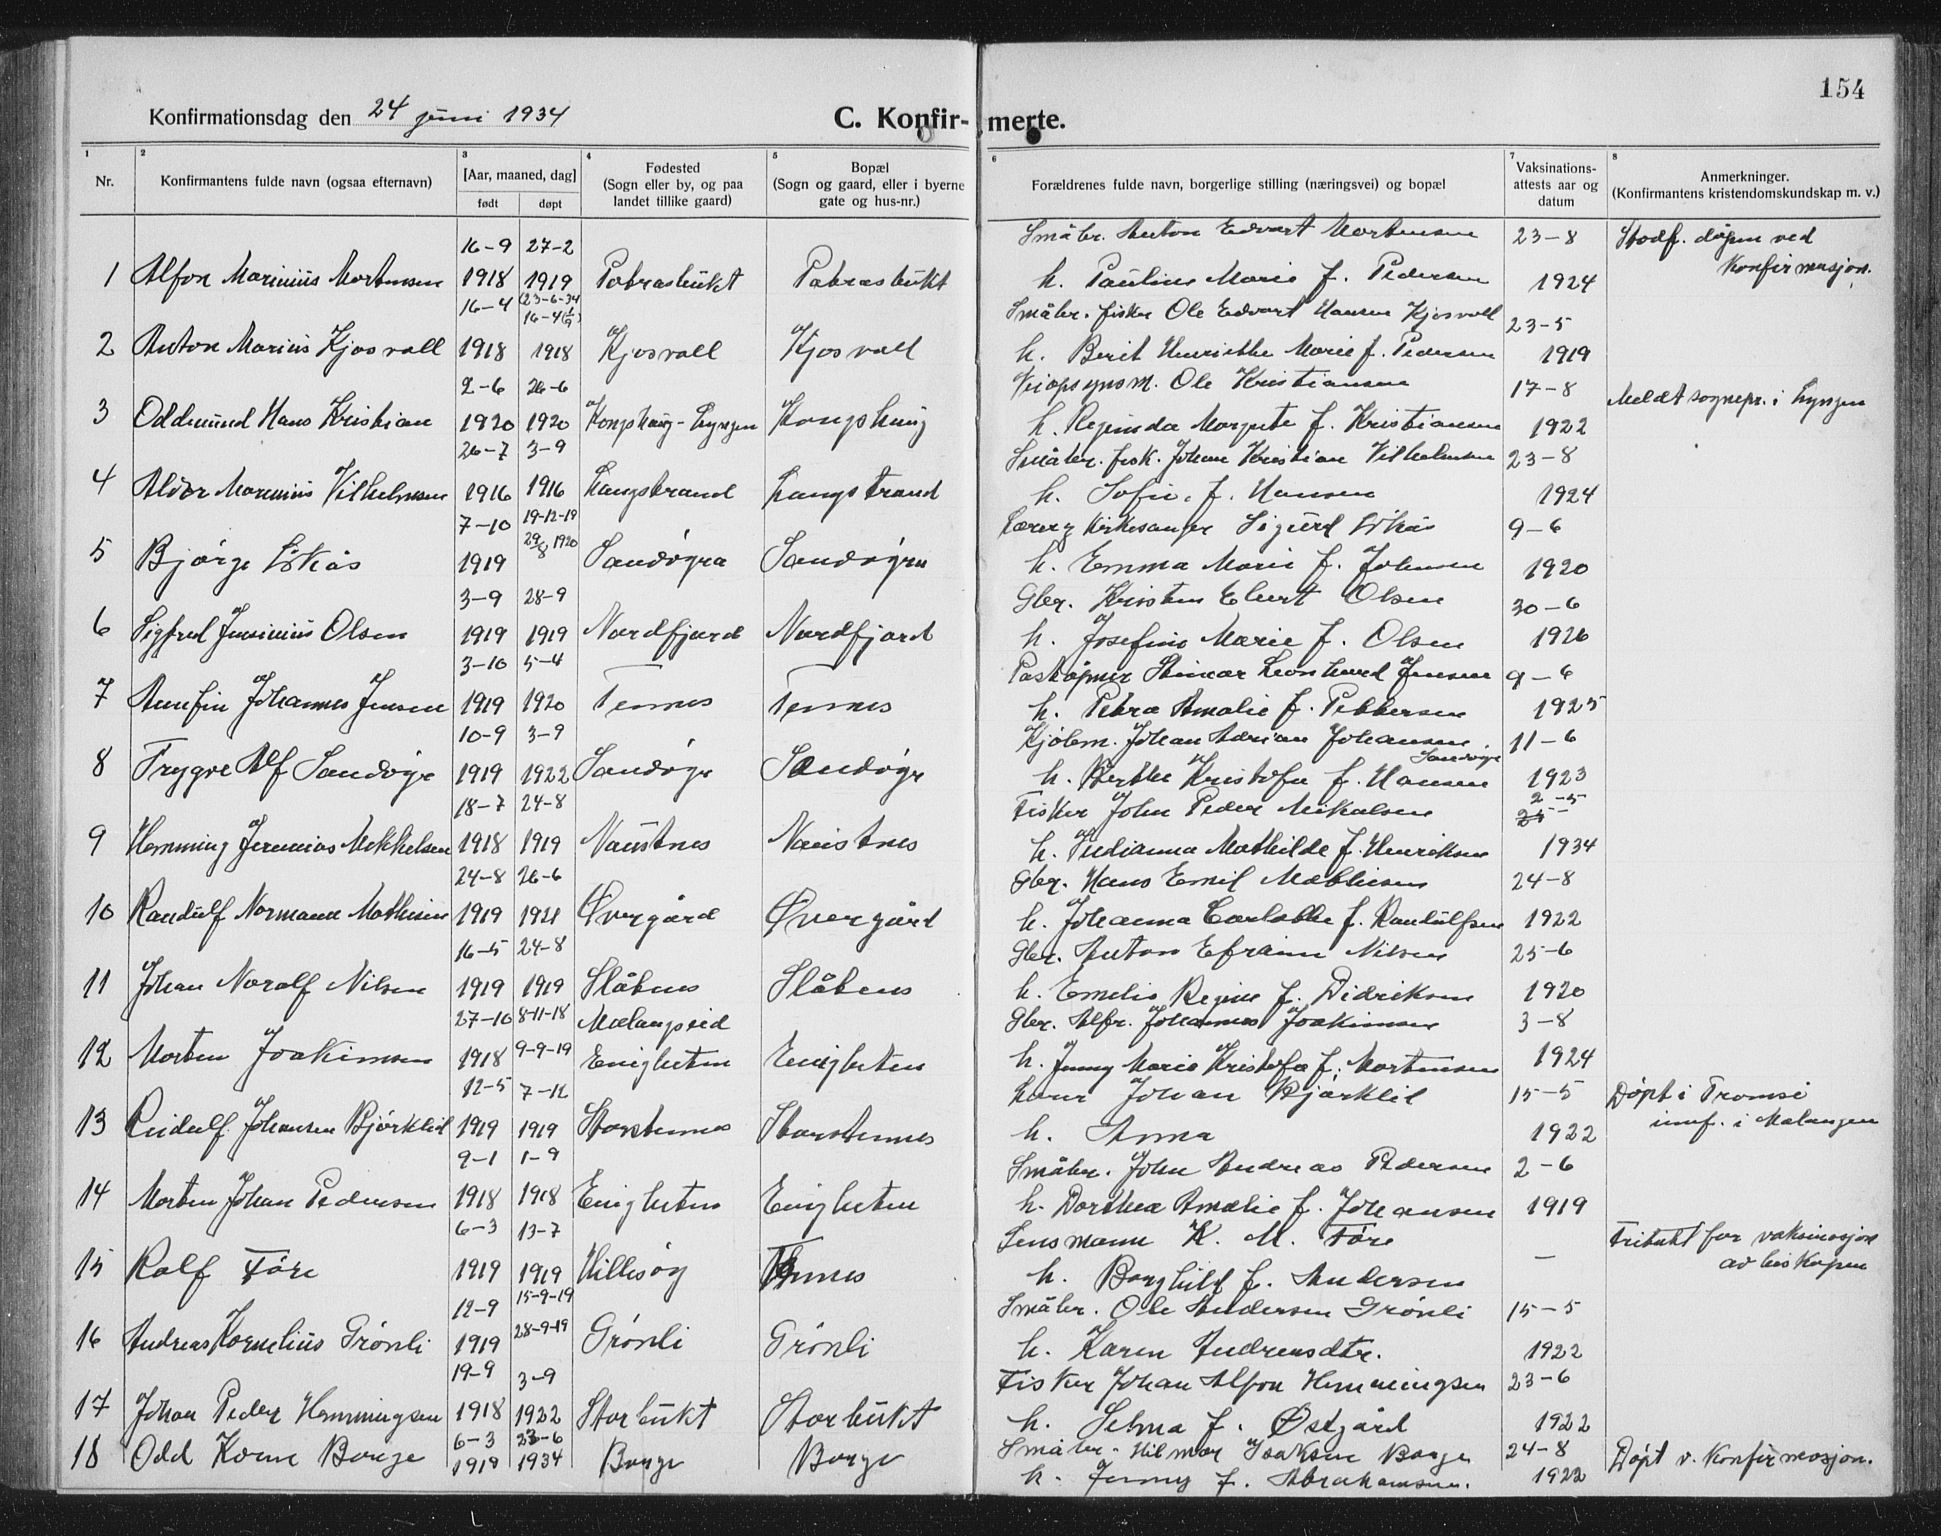 154
Konfirmationsdag den 24 juni 1934
C. Konfir- merte.
1 2 3 4 5 6 7 8
Nr.
Konfirmantens fulde navn (ogsaa efternavn)
[Aar, maaned, dag]
født døpt
Fødested
(Sogn eller by, og paa
landet tillike gaard)
Bopæl
(Sogn og gaard, eller i byerne
gate og hus-nr.)
Forældrenes fulde navn, borgerlige stilling (næringsvei) og bopæl
Vaksinations-
attests aar og
datum
Anmerkninger.
(Konfirmantens kristendomskundskap m. v.)
16-9 27-2 Småbr. Anton Edvart Mortensen 23-8 Stadf. dåpen ved
1 Alfon Marinius Mortensen 1918 1919 h. Pauline Marie f. Pedersen 1924 Konfirmasjon.
(23-6-34
16-4 16-4 Småbr. fisker Ole Edvart Hansen Kjosvoll 23-5
2 Anton Marius Kjosvoll 1918 1918 Kjosvoll Kjosvoll h. Berit Henriethe Marie f. Pedersen 1919
2-6 26-6 Veiopsynsm. Ole Kristiansen 17-8 Meldt sognepr. i Lyngen
3 Oddmund Hans Kristian 1920 1920 Kongshaug-Lyngen Kongshaug h. Reginda Margrete f. Kristiansen 1922
26-7 3-9 Småbr. fisk. Johan Kristian Vilhelmsen 23-8
4 Aldor Marenius Vilhelmsen 1916 1916 Langstrand Langstrand h. Sofie f. Hansen 1924
7-10 19-12-19 Kirkesanger Sigurd 9-6
29/8 1920
5 Bjørge 1919 Sandøyra Sandøyra h. Emma Marie f. Johnsen 1920
3-9 28-9 Gbr. Kristen Elvert Olsen 30-6
6 Sigfred Jensinius Olsen 1919 1919 Nordfjord Nordfjord h. Josefine Marie f. Olsen 1926
3-10 5-4 Poståpner Leonhard Jensen 9-6
7 Arnfin Johannes Jensen 1919 1920 Tennes Tennes h. Petra Amalie f. Pettersen 1925
10-9 3-9 Kjøbm. Johan Adrian Johansen 11-6
Sandøyr
8 Trygve Alf Sandøyr 1919 1922 Sandøyr Sandøyr h. Berthe Kristofa f. Hansen 1923
18-7 24-8 Fisker John Peder Mikalsen 2-5
9 Hemming Jeremias Mikkelsen 1918 1919 Naustnes Naustnes h. Julianna Mathilde f. Henriksen 1934
24-8 26-6 Gbr. Hans Emil Mathisen 24-8
10 Randulf Normann Mathisen 1919 1921 Øvergård Øvergård h. Johanna Carlotte f. Randulfsen 1922
16-5 24-8 Gbr. Anton Efraim Nilsen 25-6
11 Johan Noralf Nilsen 1919 1919 Slåbnes Slåbnes h. Emelie Regine f. Didriksen 1920
27-10 8-11-18 Malangseid Gbr. Alfr. Johannes Joakimsen 3-8
12 Morten Joakimsen 1918 9-9-19 Enigheten Enigheten h. Jenny Marie Kristofa f. Mortensen 1924
12-5 7-12 Johan Bjørklid 15-5 Døpt i Tromsø
13 Reidulf Johansen Bjørklid 1919 1919 Storstennes Storstennes h. Anna 1922 innf. i Malangen
9-1 1-9 Småbr. John Andreas Pedersen 2-6
14 Morten Johan Pedersen 1918 1918 Enigheten Enigheten h. Dorthea Amalie f. Johansen 1919
6-3 13-7 Lensmann K. M. Føre — Fritatt for vaksinasjon
15 Rolf Føre 1919 1919 Hillesøy Tennes h. Borghild f. Andersen av biskopen
12-9 15-9-19 Småbr. Ole Andersen Grønli 15-5
16 Andreas Kornelius Grønli 1919 28-9-19 Grønli Grønli h. Karen Andreasdtr. 1922
19-9 3-9 Fisker Johan Alfon Hemmingsen 23-6
17 Johan Peder Hemmingsen 1918 1922 Storbukt Storbukt h. Selma f. Østgård 1922
6-3 23-6 Småbr. Hilmar Isaksen Borge 24-8 Døpt v. Konfirmasjon.
18 Odd Borge 1919 1934 Borge Borge h. Jenny f. Abrahamsen. 1922